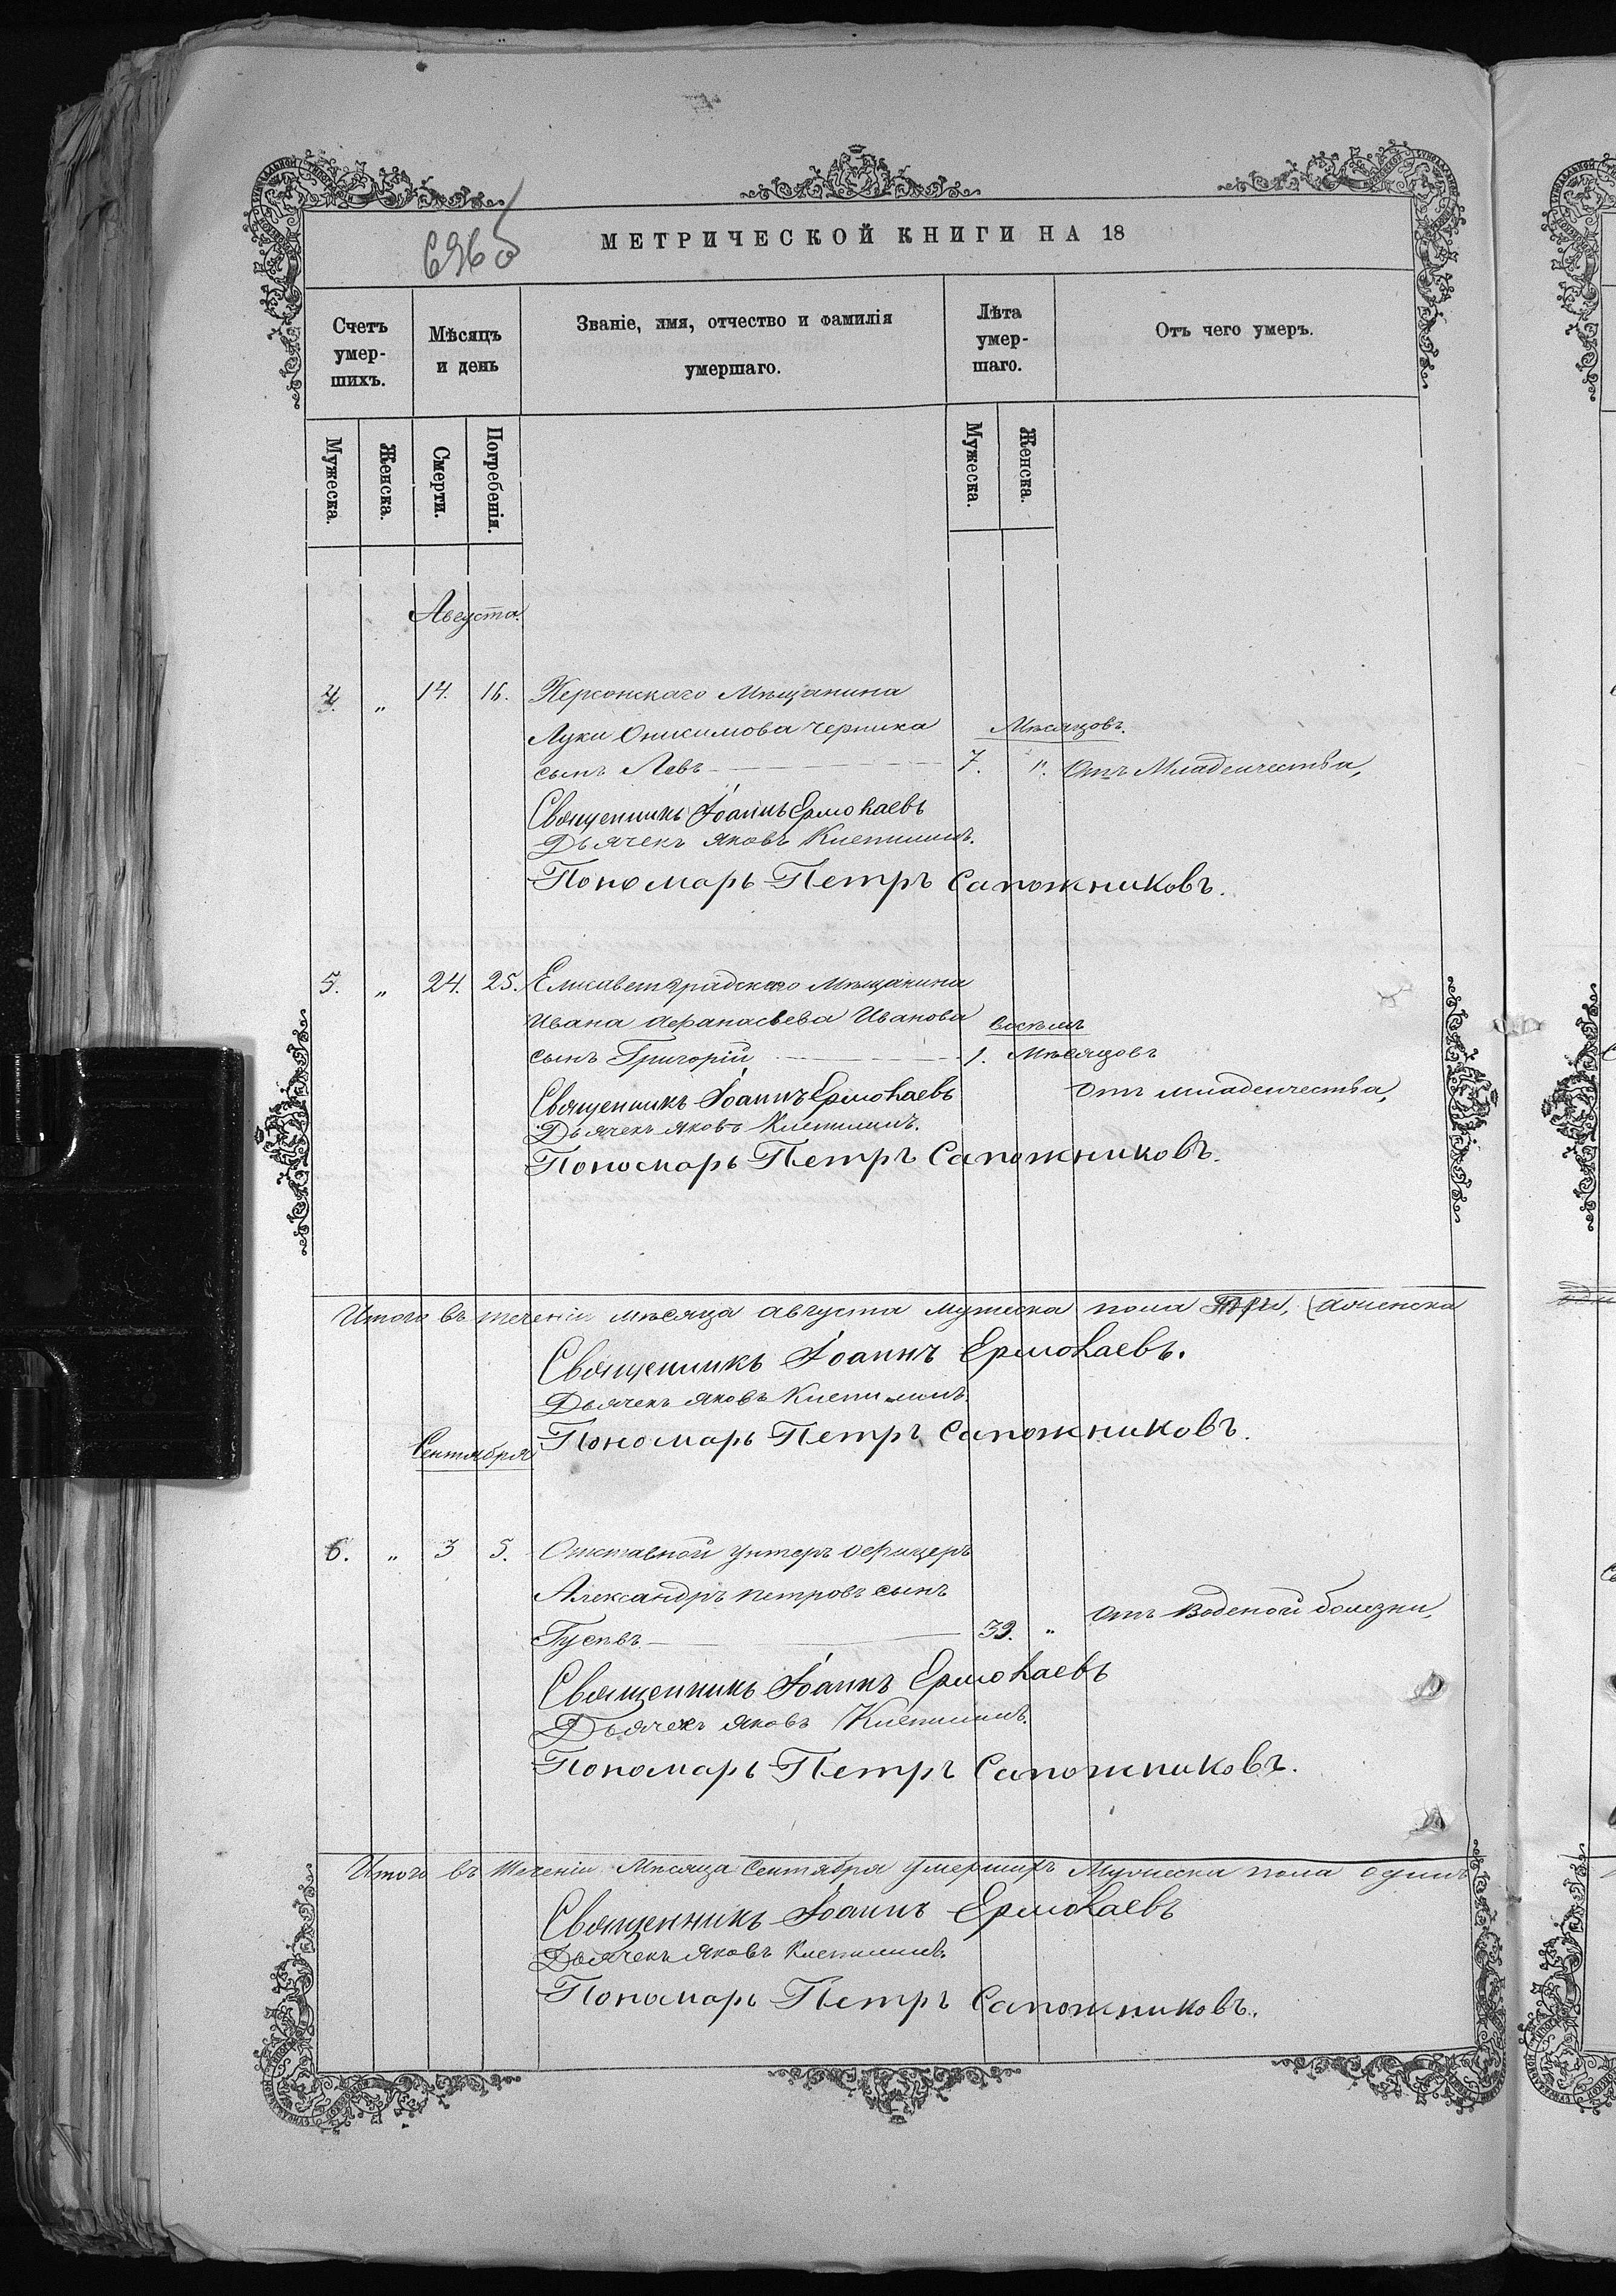 696 об
МЕТРИЧЕСКОЙ КНИГИ НА 18
Счетъ умер-шихъ.
Мѣсяцъ и день
Званіе, имя, отчество и фамилія умершаго.
Лѣта умер-шаго.
Отъ чего умеръ.
Мужеска.
Женска.
Смерти.
Погребенія.
Мужеска.
Женска.
Августа.
4. „ 14. 16. Херсонскаго Мѣщанина
Луки Онисимова Черника Мѣсяцовъ.
сынъ Левъ 7. „. Отъ Младенчества,
Священникъ Іоаннъ Ермолаевъ
Дьячекъ Яковъ
Пономарь Петръ Сапожниковъ.
5. „ 24. 25. Елисаветградскаго Мѣщанина
Ивана Афанасьева Иванова восемь
сынъ Григорій 1. Мѣсяцовъ
Отъ младенчества,
Священникъ Іоаннъ Ермолаевъ
Дьячекъ Яковъ
Пономарь Петръ Сапожниковъ.
Итого въ теченіи мѣсяца августа мужеска пола три,
Священникъ Іоаннъ Ермолаевъ.
Дьячекъ Яковъ
Пономарь Петръ Сапожниковъ.
Сентября
6. „ 3 5. Отставной унтеръ офицеръ
Александръ Петровъ сынъ
Гусевъ 39. „ Отъ Воденой болезни,
Священникъ Іоаннъ Ермолаевъ
Дьячекъ Яковъ
Пономарь Петръ Сапожниковъ.
Итого въ теченіи Мѣсяца Сентября умершихъ Мужеска пола одинъ
Священникъ Іоаннъ Ермолаевъ
Дьячекъ Яковъ
Пономарь Петръ Сапожниковъ.